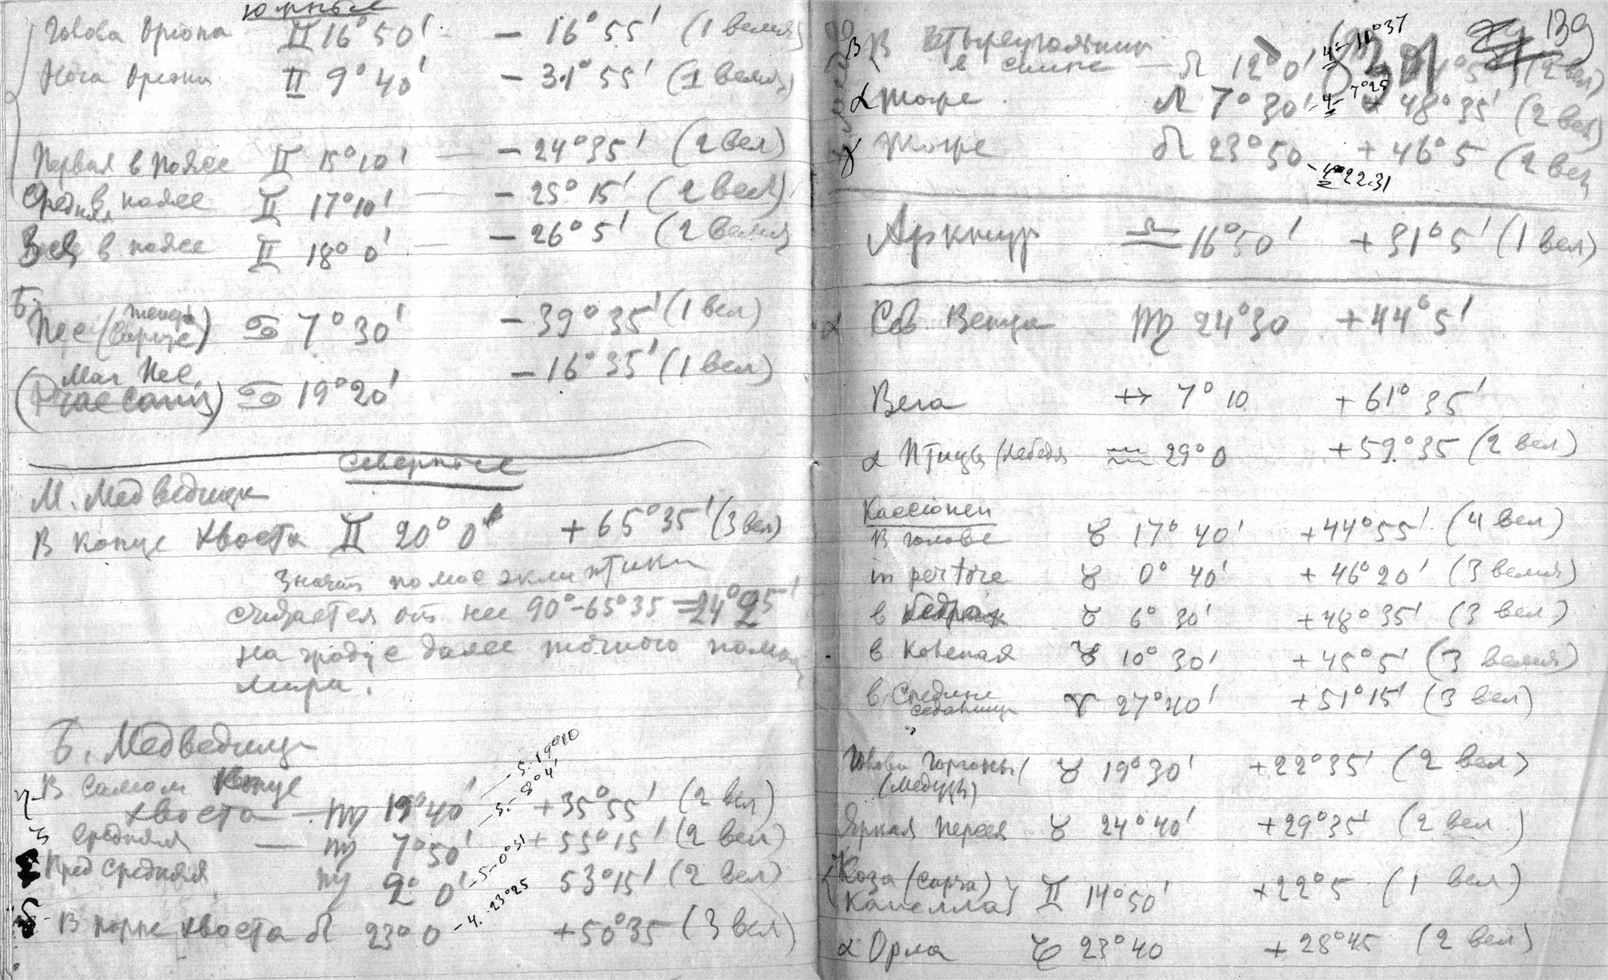 Южные
Голова Ориона ♊ 16° 50' — 16° 55' (1 велич)
Нога Ориона ♊ 9° 40' — 31° 55' (1 велич)
Первая в поясе ♊ 15° 10' — — 24° 35' (2 вел)
Средняя в поясе ♊ 17° 10' — — 25° 15' (2 вел)
3-я в поясе ♊ 18° 0' — — 26° 5' (2 велич)
Б.
Пес (в сердце) ♋ 7° 30' — 39° 35' (1 вел)
Мал Пес
(Praecanis) ♋ 19° 20' — 16° 35' (1 вел)
Северные
М. Медведица
В конце хвоста ♊ 20° 0' + 65° 35' (3 вел)
Значит полюс эклиптики
считается от нее 90° - 65° 35 = 24° 25'
на градус далее точного полюса
мира!
Б. Медведица
η В самом конце
хвоста — ♍ 19° 40' - 5. 19° 10 + 35° 55' (2 вел)
средняя — ♍ 7° 50' - 5. - 8° 4' + 55° 15' (2 вел)
Пред средняя ♍ 2° 0' - 5 - 0° 31 53° 15' (2 вел)
В корне хвоста ♌ 23° 0 - 4. 23° 25 + 50° 35 (3 вел)
139
β В четыреугольнике
в спине — ♌ 12° 0' - 4 - 11° 37 (2 вел)
α Тоже ♌ 7° 30' - 4 - 7° 25 + 48° 35' (2 вел)
γ Тоже ♌ 23° 50 - 4 22.31 + 46° 5 (2 вел
Арктур ♎ 16° 50' + 31° 5' (1 вел)
α Сев Венца ♍ 24° 30 + 44° 5'
Вега ♐ 7° 10 + 61° 35'
α Птицы/Лебедя ♒ 29° 0 + 59° 35 (2 вел)
Кассиопеи
В голове ♉ 17° 40' + 44° 55' (4 вел)
♉ 0° 40' + 46° 20' (3 велич)
в бедрах ♉ 6° 30' + 48° 35' (3 вел)
в коленях ♉ 10° 30' + 45° 5' (3 велич)
в средине
седалища ♈ 27° 40' + 51° 15' (3 вел)
Голова Горгоны
(Медузы) ♉ 19° 30' + 22° 35' (2 вел)
Яркая Персея ♉ 24° 40' + 29° 35' (2 вел)
Коза
Капелла ♊ 14° 50' + 22° 5 (1 вел)
α Орла ♑ 23° 40 + 28° 45 (2 вел)